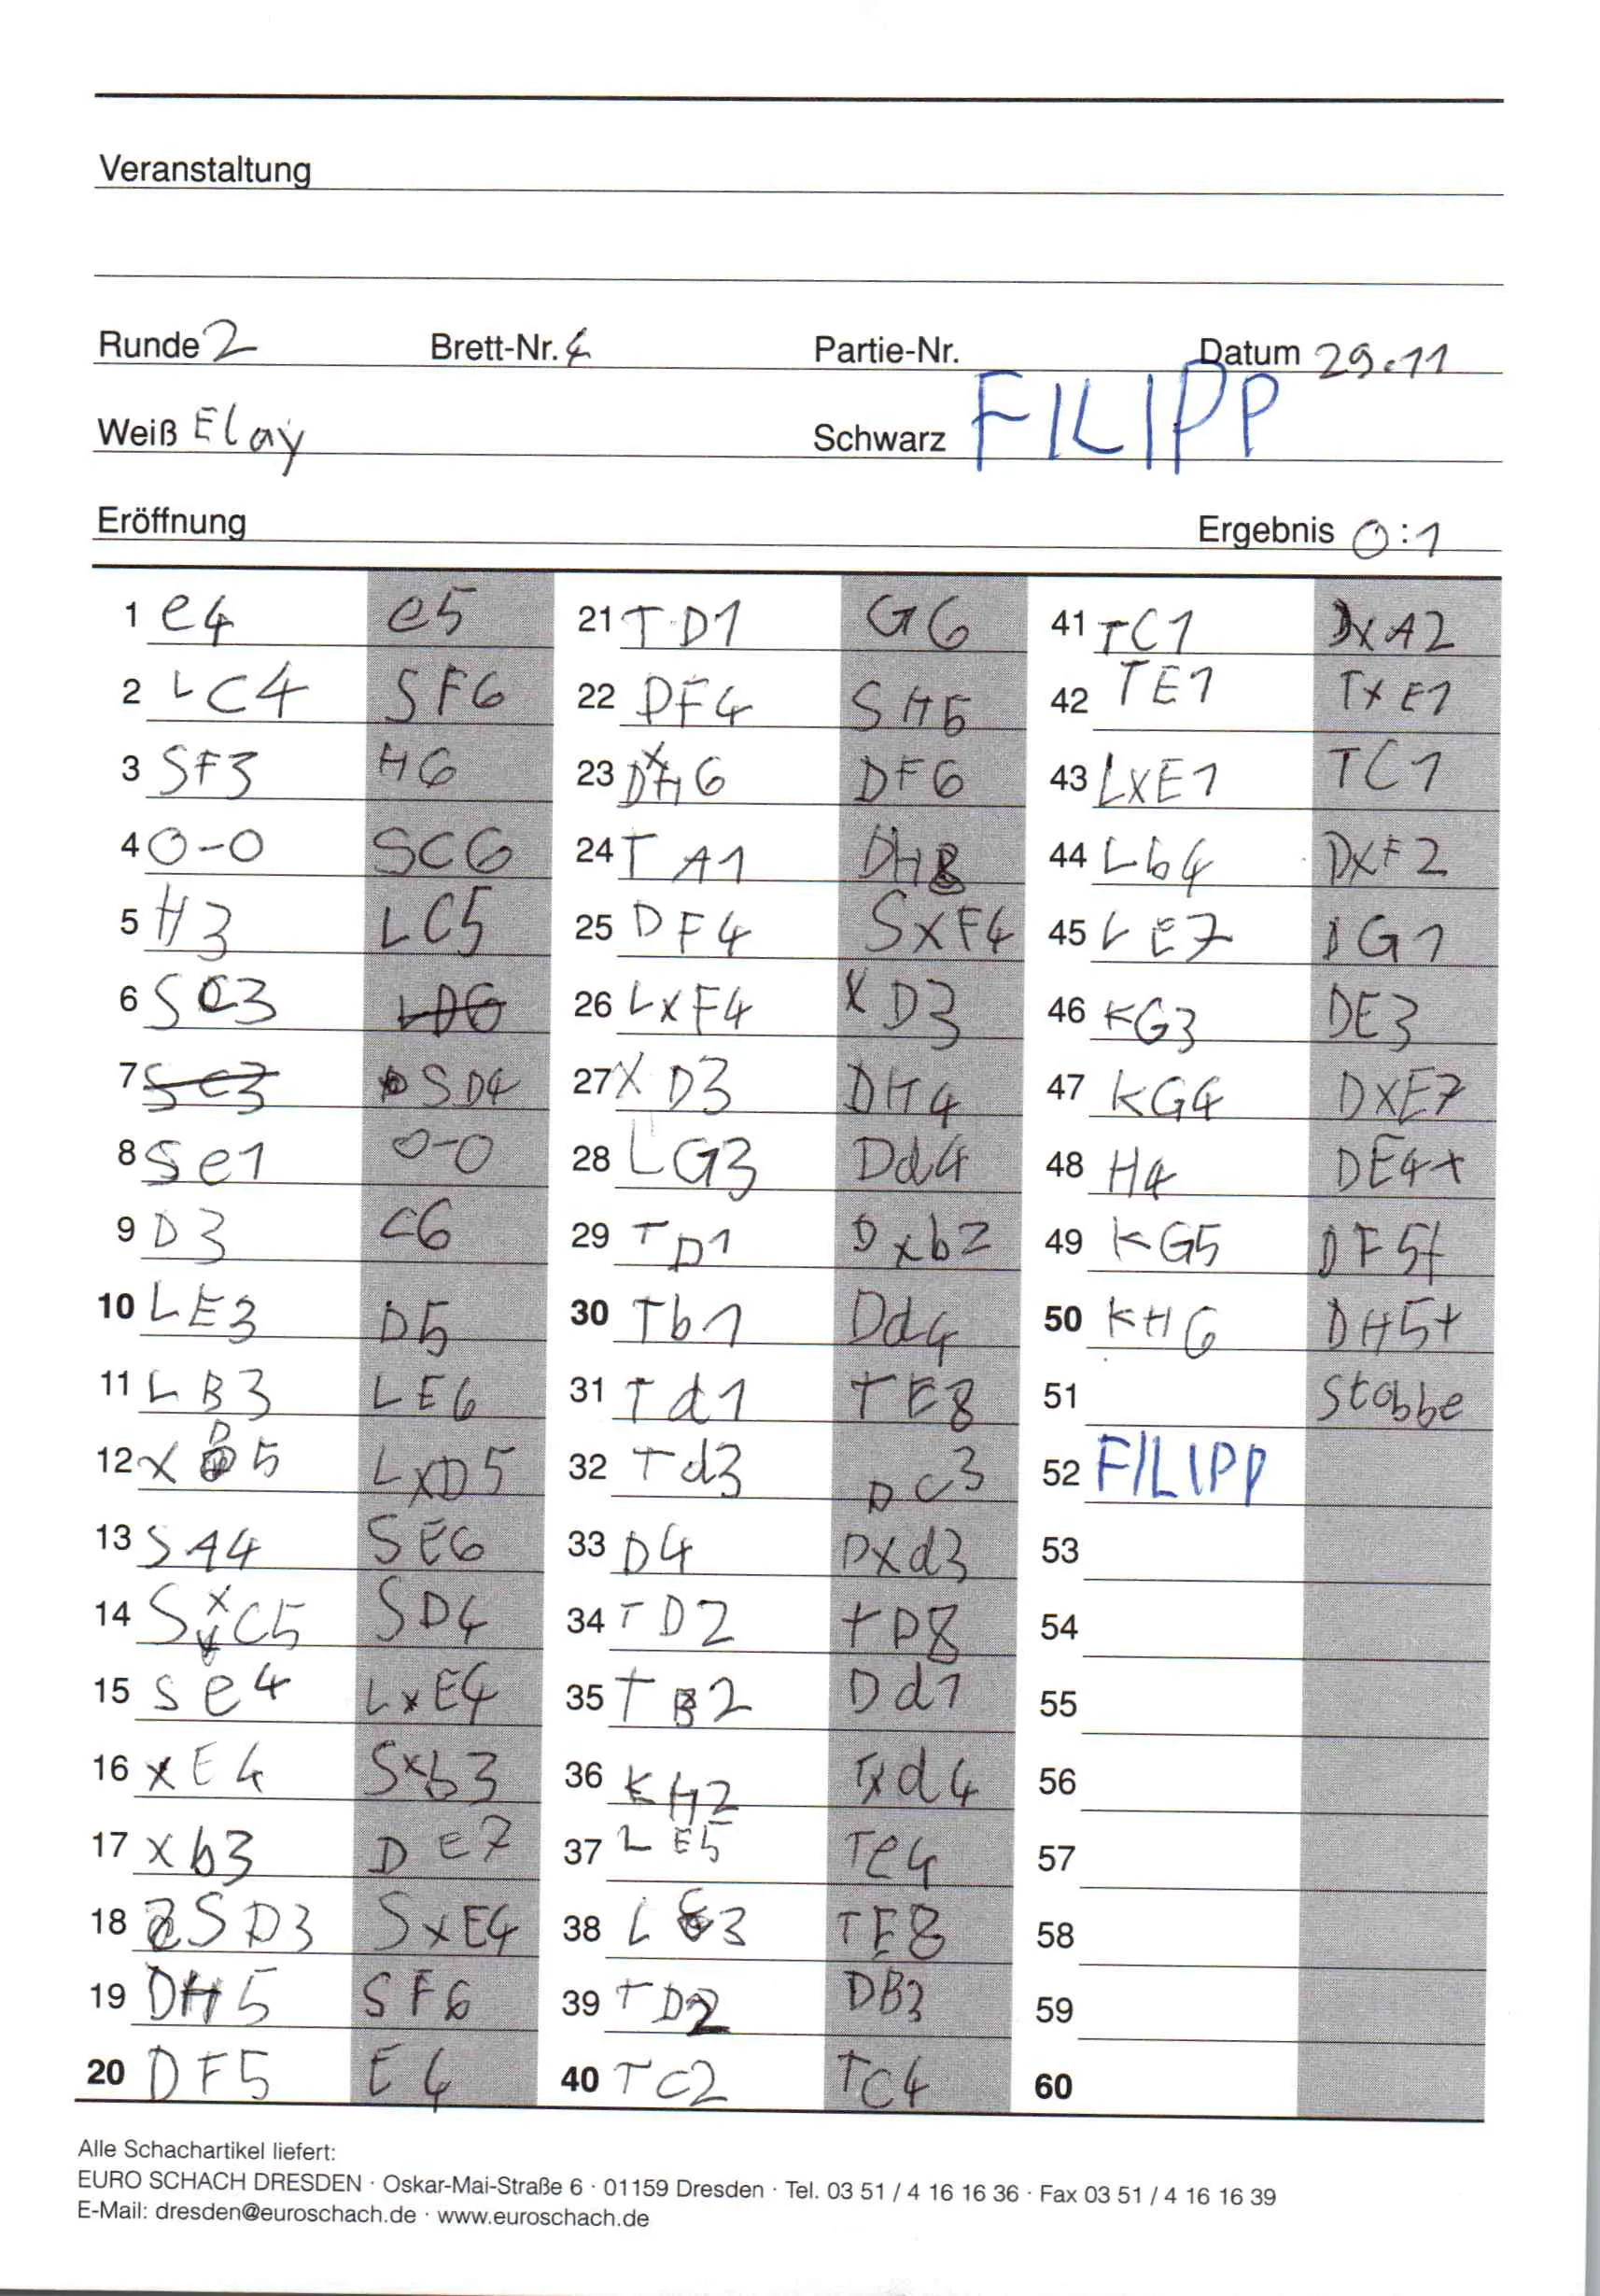 Veranstaltung
Runde 2 Brett-Nr. 4 Partie-Nr. Datum 29.11
Weiß Elay Schwarz FILIPP
Eröffnung Ergebnis 0:1
1 e4 e5
2 LC4 SF6
3 SF3 H6
4 0-0 SC6
5 H3 LC5
6 SC3 LD6
7 Sc3 SD4
8 Se1 0-0
9 D3 c6
10 LE3 D5
11 LB3 LE6
12 XD5 LXD5
13 SA4 SE6
14 SXC5 SD4
15 Se4 LxE4
16 xE4 Sxb3
17 xb3 DE7
18 SD3 SxE4
19 DH5 SF6
20 DF5 E4
21 TD1 G6
22 DF4 SH5
23 DXH6 DF6
24 TA1 DH8
25 DF4 SXF4
26 LXF4 XD3
27 XD3 DH4
28 LG3 Dd4
29 TD1 Dxb2
30 Tb1 Dd4
31 Td1 TE8
32 Td3 DC3
33 D4 DXd3
34 TD2 TD8
35 TB2 Dd1
36 KH2 Txd4
37 LE5 Te4
38 LG3 TE8
39 TD2 DB3
40 TC2 TC4
41 TC1 DXA2
42 TE1 TXE1
43 LXE1 TC1
44 Lb4 DXF2
45 LE7 DG1
46 KG3 DE3
47 KG4 DXE7
48 H4 DE4+
49 KG5 DF5+
50 KH6 DH5+
51 Stobbe
52 FILIPP
53
54
55
56
57
58
59
60
Alle Schachartikel liefert:
EURO SCHACH DRESDEN · Oskar-Mai-Straße 6 · 01159 Dresden · Tel. 03 51 / 4 16 16 36 · Fax 03 51 / 4 16 16 39
E-Mail: dresden@euroschach.de · www.euroschach.de